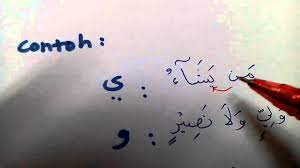 contoh :
مَن يَشَآءُ : ي
وَلِيٍّ وَلَا نَصِيرٍ : و